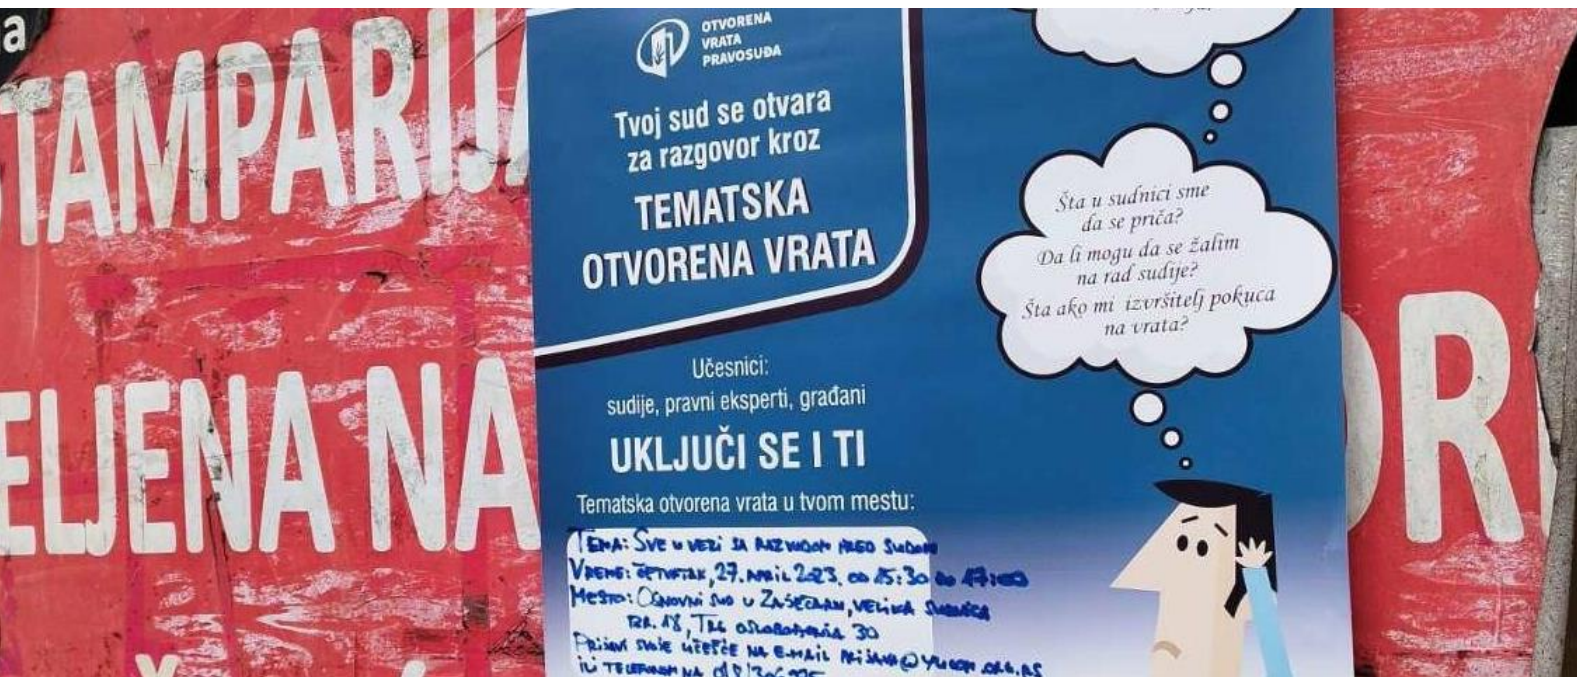 a
TAMPARIJA
ELJENA NA
OTVORENA
VRATA
PRAVOSUĐA
Tvoj sud se otvara
za razgovor kroz
TEMATSKA
OTVORENA VRATA
Učesnici:
sudije, pravni eksperti, građani
UKLJUČI SE I TI
Tematska otvorena vrata u tvom mestu:
TEMA: SVE U VEZI SA RAZVODOM PRED SUDOM
VREME: ČETVRTAK, 27. APRIL 2023. OD 15:30 DO 17:00
MESTO: OSNOVNI SUD U ZAJEČARU, VELIKA SUDNICA
BR. 18, TRG OSLOBOĐENJA 30
PRIJAVI SVOJE UČEŠĆE NA E-MAIL PRIJAVA@YUCOM.ORG.RS
ILI TELEFONOM NA
Šta u sudnici sme
da se priča?
Da li mogu da se žalim
na rad sudije?
Šta ako mi izvršitelj pokuca
na vrata?
OR